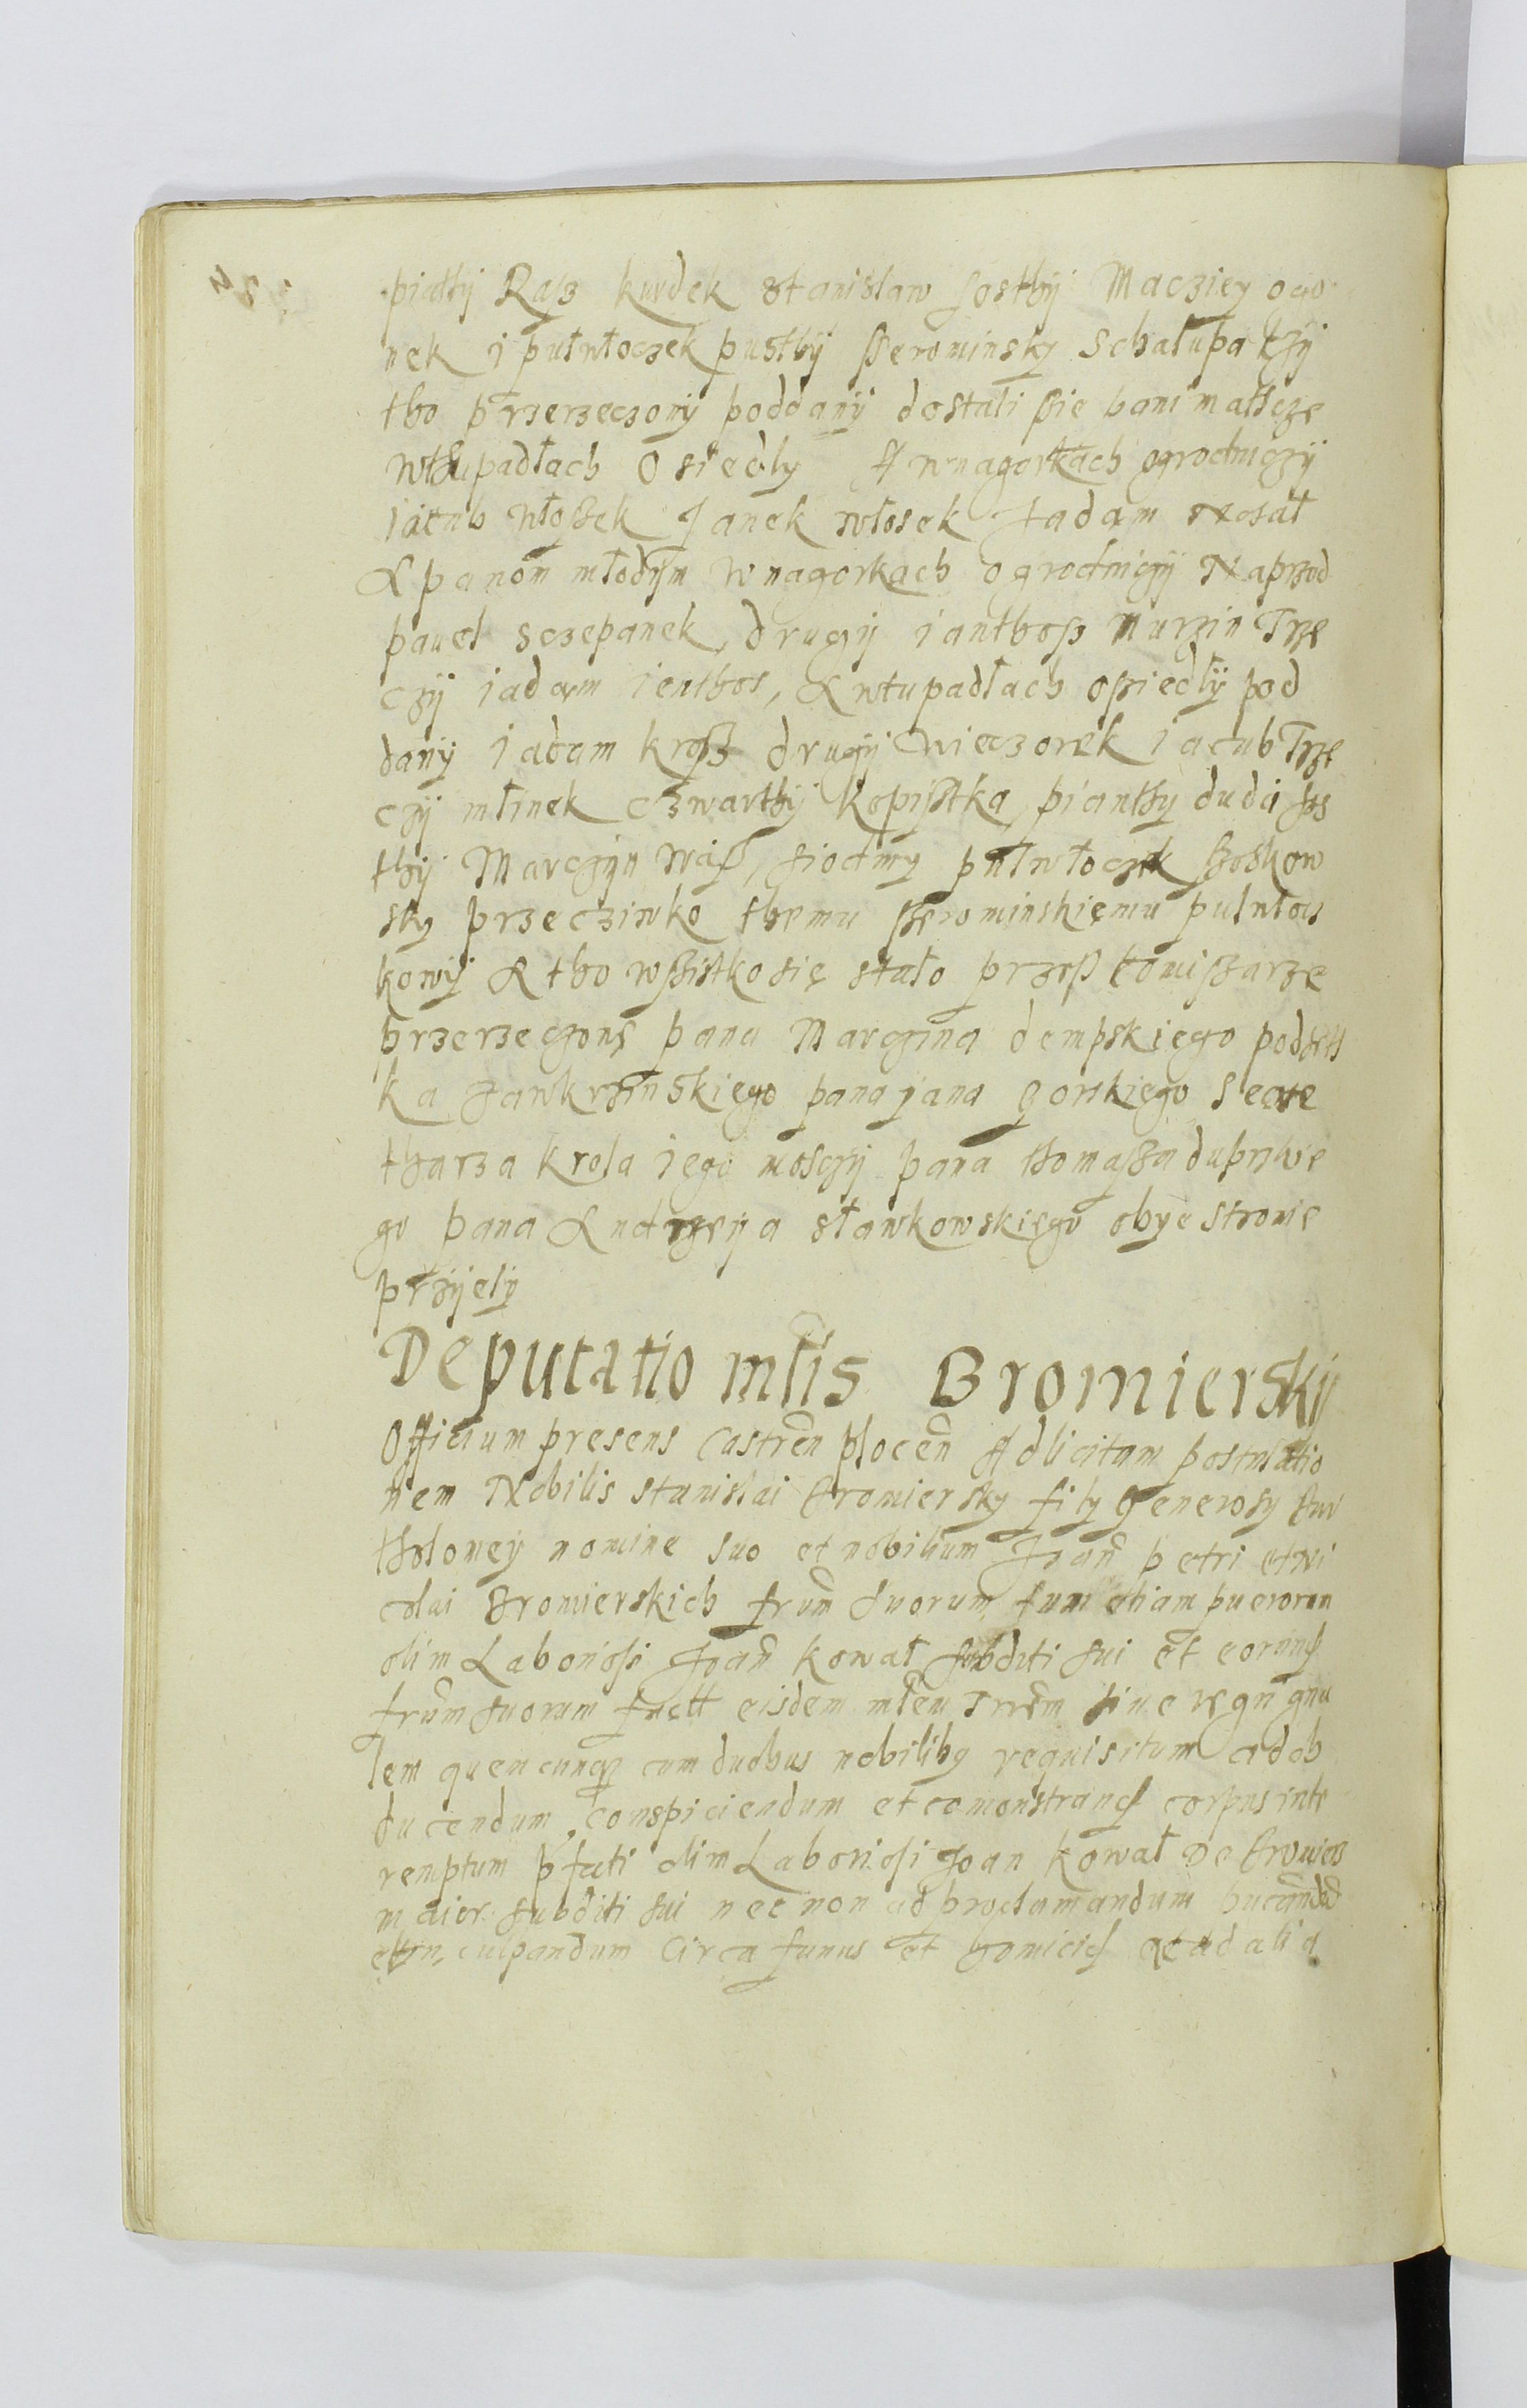 piąthÿ Rasz kurdek Stanislaw sosthÿ Macziey ogo
nek i pułwłoczek pusthÿ sserominsky schałupa czÿ
tho przerzeczonÿ poddanÿ dostali ssie bani matscze
wthupadłach Osiedly A wnagorkach ogrodniczÿ
iacub włossek Janek włosek Jadam Nosał
A panom młodÿm w nagorkach ogrodniczÿ Naprzod
pauel sczepanek, drugÿ ianthoss murzin Trze
czÿ iadam ienthos, A wtupadłach ossiedlÿ pod
danÿ iadam kross drugÿ wieczorek iacub Trze
czÿ młinek czwarthÿ kopistka pianthy duda sos
thÿ Marczÿn Wass, siodmy pułwłoczek
sky przeczinko themu sserominskiemu pułwłocz
kowÿ A tho wssistko się stało przess komissarze
przerzeczone pana Marczina dempskiego podsest
ka zawkrzinskiego pana jana gorskiego Secre
tharza krola iego mosczÿ pana thomassa
go pana Andrzeja sławkowskiego obye stronie
przÿjelÿ
Deputatio mlis Bromierskÿ
Officium presens castren plocen Ad licitam postulatio
nem Nobilis Stanislai Bromiersky fily Generosy Bar
tholomeÿ nomine suo et nobilium Joan petri et Ni
colai Bromierskich frum suorum etiam pueroru
olim Laboriosi Joan kował subditi sui et eorund
frum suorum eisdem mlem Trrem siue regn gna
lem quencunq cum duobus nobilibq requisitum ad ob
ducendum conspiciendum et comonstrand corpus inte
remptum pfati olim Laboriosi Joan kował de Bromierz
maior subditi sui nec non ad proclamandum
culpandum Circa funus et homicid et ad alia